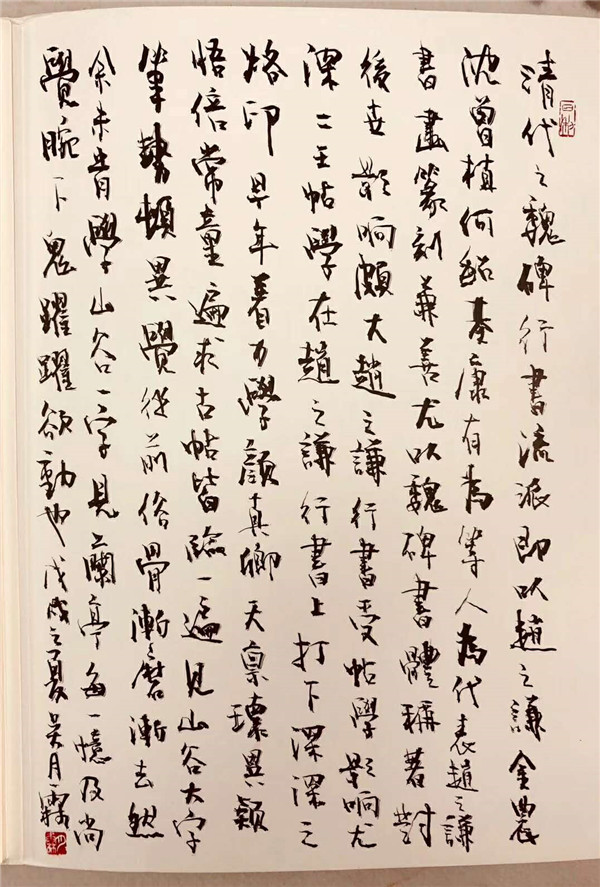 清代之魏碑行書流派即以趙之謙金農
沈曾植何紹基康有為等人為代表趙之謙
書畫篆刻兼善尤以魏碑書體稱著對
後世影响頗大趙之謙行書受帖學影响尤
深二王帖學在趙之謙行書上打下深深之
烙印早年着力學顏真卿天禀瓌異穎
悟倍常童遍求古帖皆臨一遍見山谷大字
筆勢頓異覺從前俗骨漸磨漸去然
余未肯學山谷一字見蘭亭每一憶及尚
覺腕下鬼躍躍欲動也戊戌之夏吴月霖